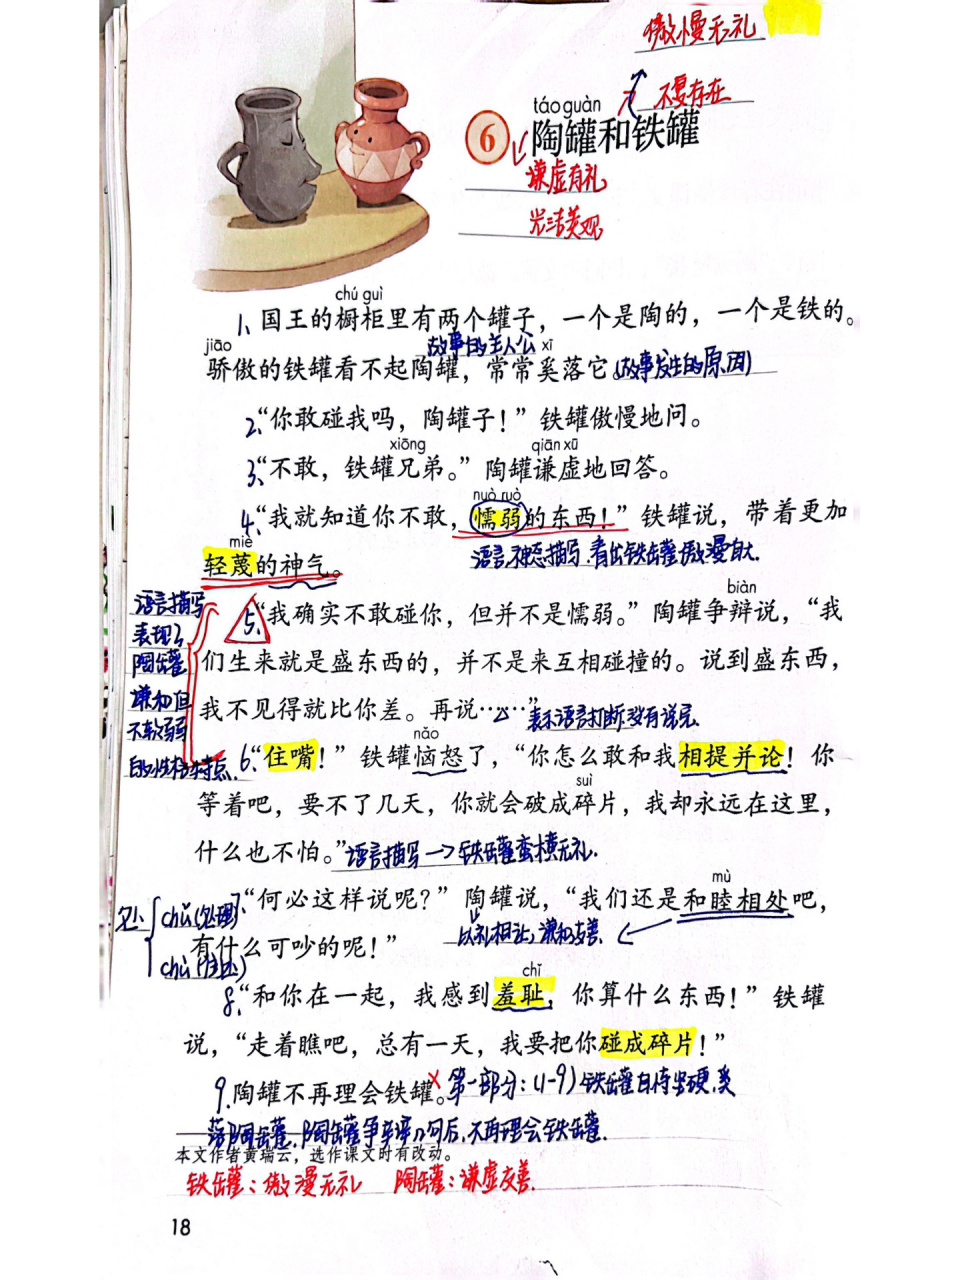 傲慢无礼
不复存在
táo guàn
6 陶罐和铁罐
谦虚有礼
光洁美观
chú guì
1、国王的橱柜里有两个罐子，一个是陶的，一个是铁的。
故事的主人公
jiāo xī
骄傲的铁罐看不起陶罐，常常奚落它。(故事发生的原因)
2、“你敢碰我吗，陶罐子！”铁罐傲慢地问。
xiōng qiān xū
3、“不敢，铁罐兄弟。”陶罐谦虚地回答。
nuò ruò
4、“我就知道你不敢，懦弱的东西！”铁罐说，带着更加
miè
轻蔑的神气。
语言、神态描写.看出铁罐傲慢自大.
biàn
5、“我确实不敢碰你，但并不是懦弱。”陶罐争辩说，“我
们生来就是盛东西的，并不是来互相碰撞的。说到盛东西，
我不见得就比你差。再说……”
表示语言打断,没有说完.
语言描写
表现了
陶罐
谦和但
不软弱
的性格特点.
nǎo
6、“住嘴！”铁罐恼怒了，“你怎么敢和我相提并论！你
suì
等着吧，要不了几天，你就会破成碎片，我却永远在这里，
什么也不怕。”语言描写→铁罐蛮横无礼.
mù
7、“何必这样说呢？”陶罐说，“我们还是和睦相处吧，
有什么可吵的呢！”
以礼相让,谦和友善.
处
chǔ(处理)
chù(
chǐ
8、“和你在一起，我感到羞耻，你算什么东西！”铁罐
说，“走着瞧吧，总有一天，我要把你碰成碎片！”
9、陶罐不再理会铁罐。第一部分:(1-9)铁罐自恃坚硬,奚
落陶罐.陶罐争辩几句后,不再理会铁罐.
本文作者黄瑞云，选作课文时有改动。
铁罐:傲慢无礼 陶罐:谦虚友善.
18